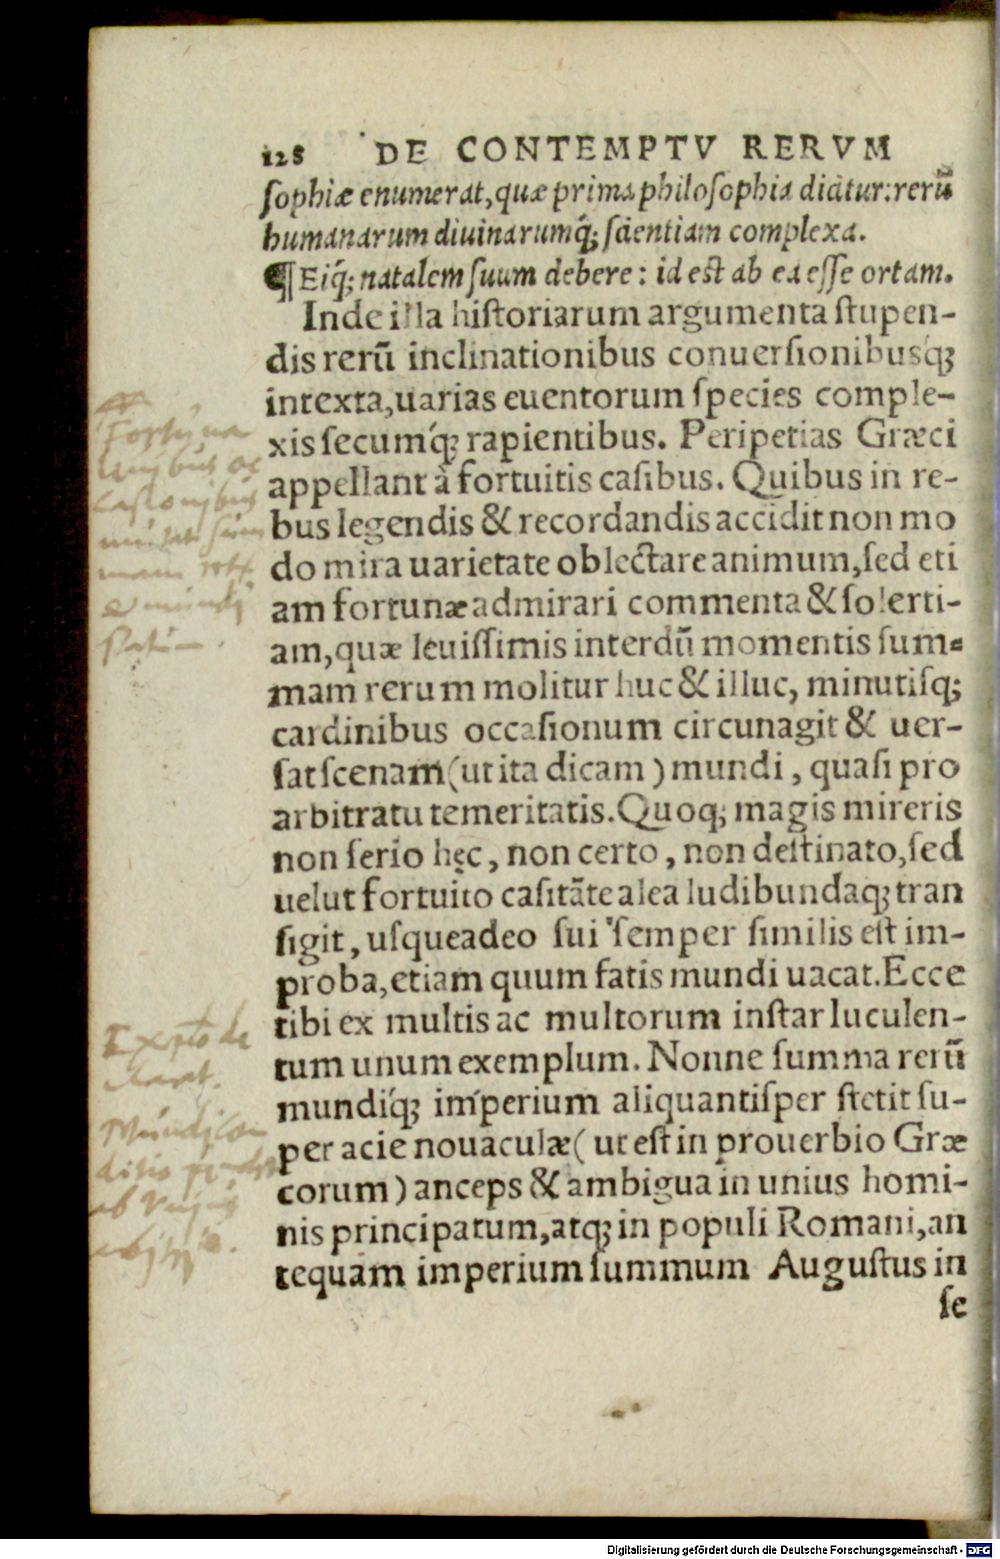 128 DE CONTEMPTV RERVM
ſophiæ enumerat, quæ prima philoſophia dicitur: rerū
humanarum diuinarumq́; ſcientiam complexa.
¶ Eiq́; natalem ſuum debere: id eſt ab ea eſſe ortam.
Inde illa hiſtoriarum argumenta ſtupen-
dis rerū inclinationibus conuerſionibusq́;
intexta, uarias euentorum ſpecies comple-
xis ſecumq́; rapientibus. Peripetias Græci
appellant à fortuitis caſibus. Quibus in re-
bus legendis & recordandis accidit non mo
do mira uarietate oblectare animum, ſed eti
am fortunæ admirari commenta & ſolerti-
am, quæ leuiſſimis interdū momentis ſum-
mam rerum molitur huc & illuc, minutiſq;
cardinibus occaſionum circunagit & uer-
ſat ſcenam (ut ita dicam) mundi, quaſi pro
arbitratu temeritatis. Quoq; magis mireris
non ſerio hęc, non certo, non deſtinato, ſed
uelut fortuito caſitāte alea ludibundaq; tran
ſigit, uſqueadeo ſui ſemper ſimilis eſt im-
proba, etiam quum fatis mundi uacat. Ecce
tibi ex multis ac multorum inſtar luculen-
tum unum exemplum. Nonne ſumma rerū
mundiq́; imperium aliquantiſper ſtetit ſu-
per acie nouaculæ (ut eſt in prouerbio Græ
corum) anceps & ambigua in unius homi-
nis principatum, atq; in populi Romani, an
tequàm imperium ſummum Auguſtus in
ſe
Digitalisierung gefördert durch die Deutsche Forschungsgemeinschaft - DFG